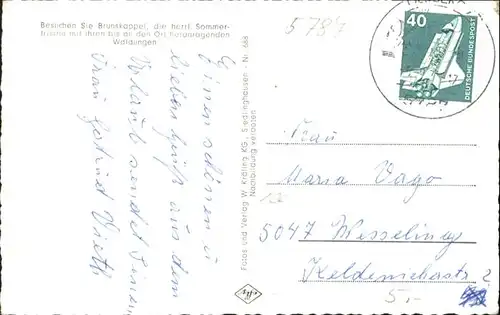 Besuchen Sie Brunskappel, die herrl. Sommer-
frische mit ihren bis an den Ort heranragenden
Waldungen
5787
40
DEUTSCHE BUNDESPOST
Einen schönen u.
lieben Gruß aus dem
Urlaub sendet Ihnen
Frau Gertrud Vieth
Fotos und Verlag W. Kräling KG., Siedlinghausen · Nr. 688
Nachbildung verboten
Frau
Maria Vago
5047 Wesseling
Keldenicherstr. 2
5,-